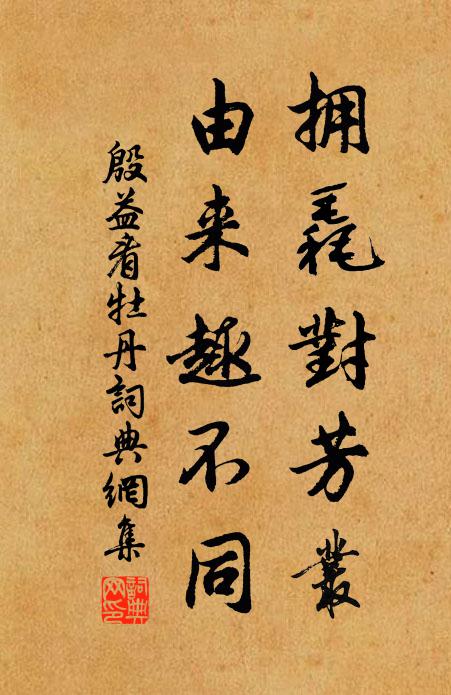 拥毳對芳叢
由来趣不同
殷益看牡丹詞典網集
詞典網印